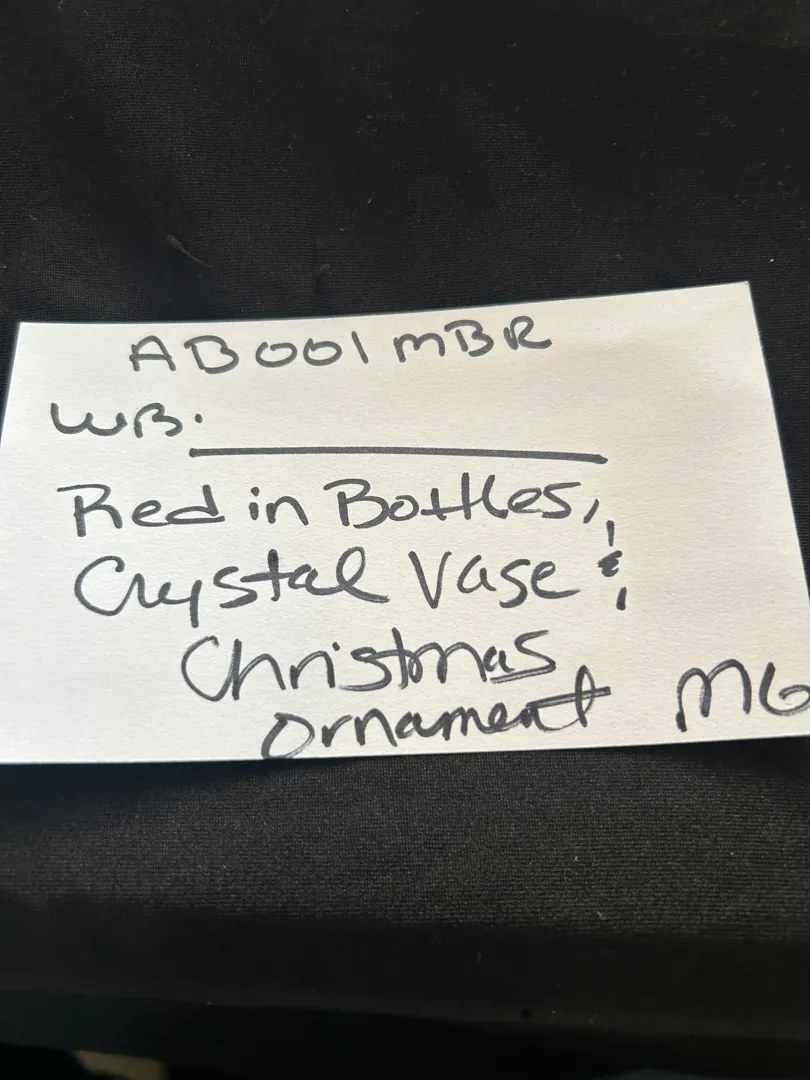 AB001MBR
WB.
Red in Bottles,
Crystal Vase &
Christmas
Ornament MG